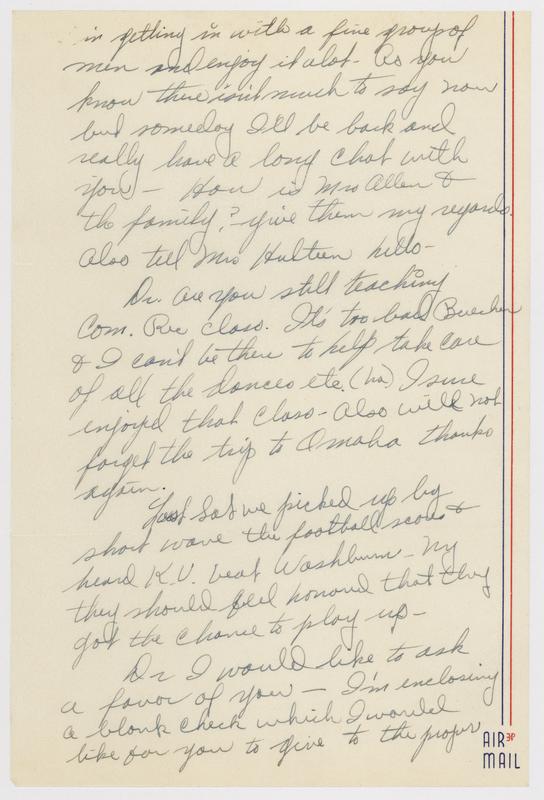 in getting in with a fine group of
men and enjoy it alot - As you
know there isn't much to say now
but someday I'll be back and
really have a long chat with
you - How is Mrs Allen &
the family? - give them my regards.
Also tell Mrs Hulteen hello -
Dr. are you still teaching
Com. Rec class. It's too bad Buescher
& I can't be there to help take care
of all the dances etc. (ha) I sure
enjoyed that class - Also will not
forget the trip to Omaha thanks
again.
Last Sat we picked up by
short wave the football scores &
heard K.U. beat Washburn - My
they should feel honored that they
got the chance to play us -
Dr I would like to ask
a favor of you - I'm enclosing
a blank check which I would
like for you to give to the proper
AIR
MAIL